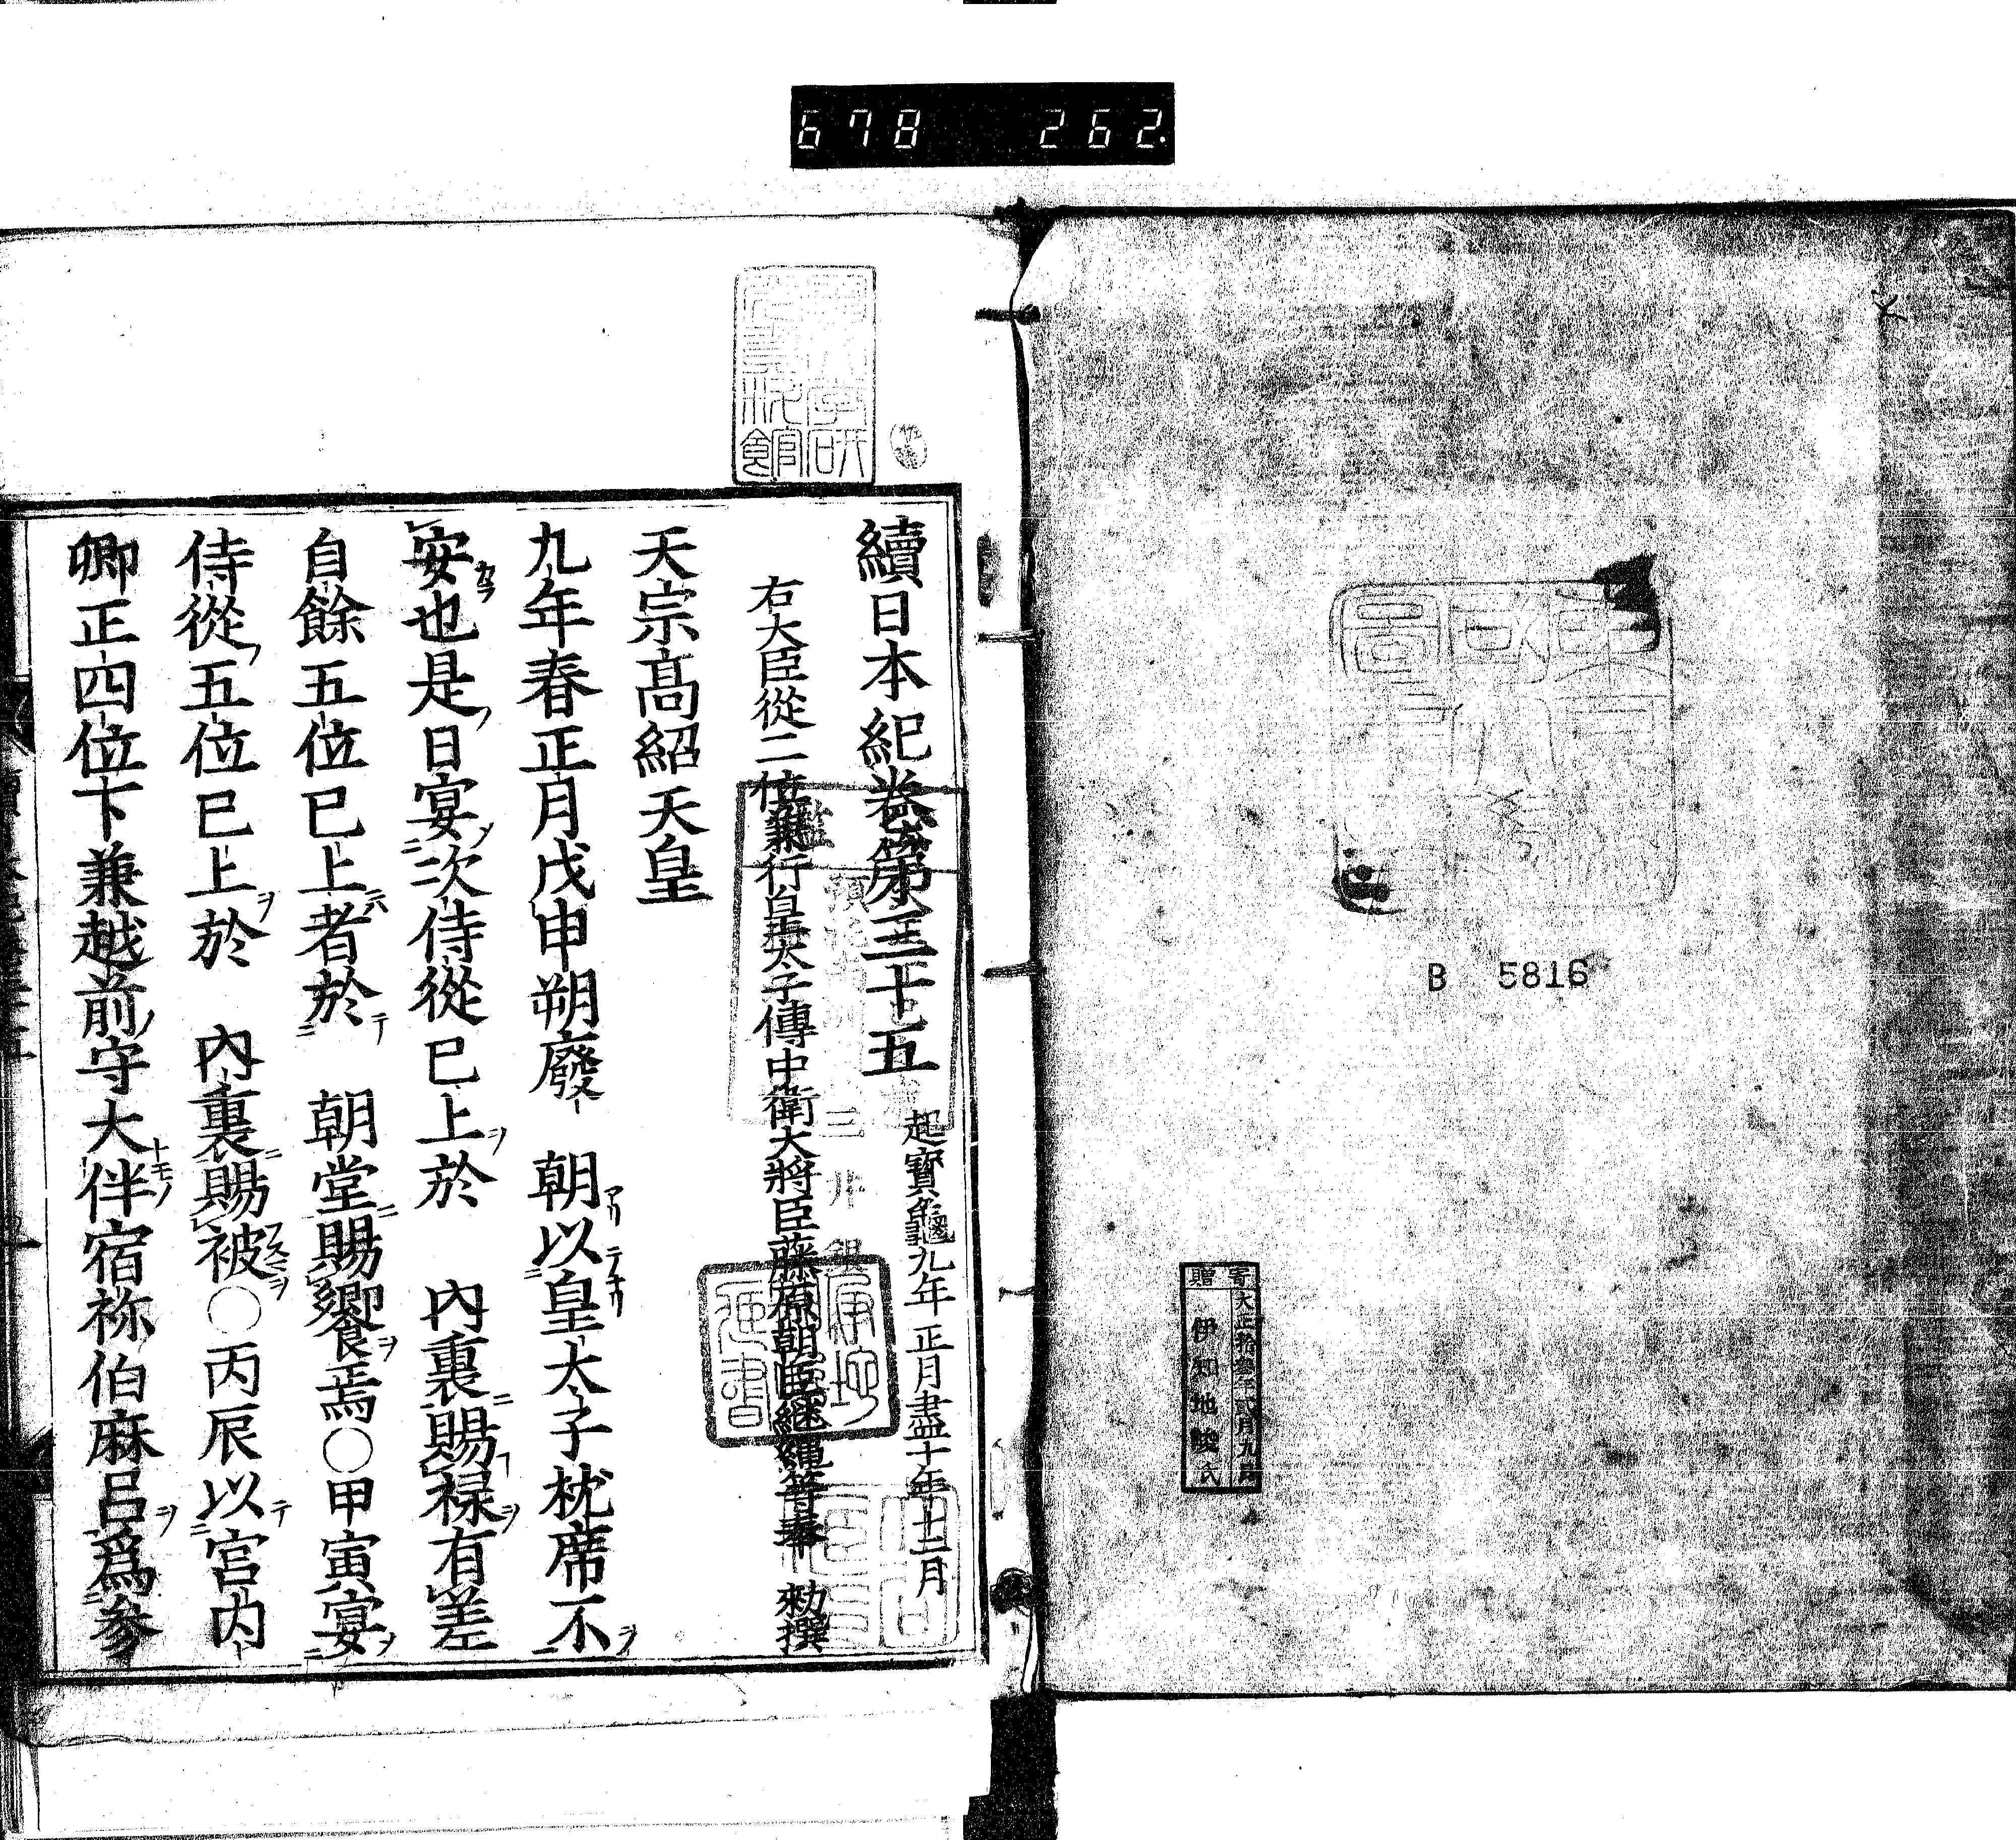 678 262.
B 5816
寄贈
大正拾參年弐月九日
伊知地峻氏
續日本紀卷第三十五 起寶龜九年正月盡十年十二月
右大臣從二位兼行皇太子傳中衛大將臣藤原朝臣繼繩等奉 勑撰
天宗髙紹天皇
九年春正月戊申朔廢 朝以皇太子枕席不
安也是日宴次侍從已上於 內裏賜祿有差
自餘五位已上者於 朝堂賜饗焉○甲寅宴
侍從五位已上於 內裏賜被○丙辰以宮内
卿正四位下兼越前守大伴宿祢伯麻呂爲參